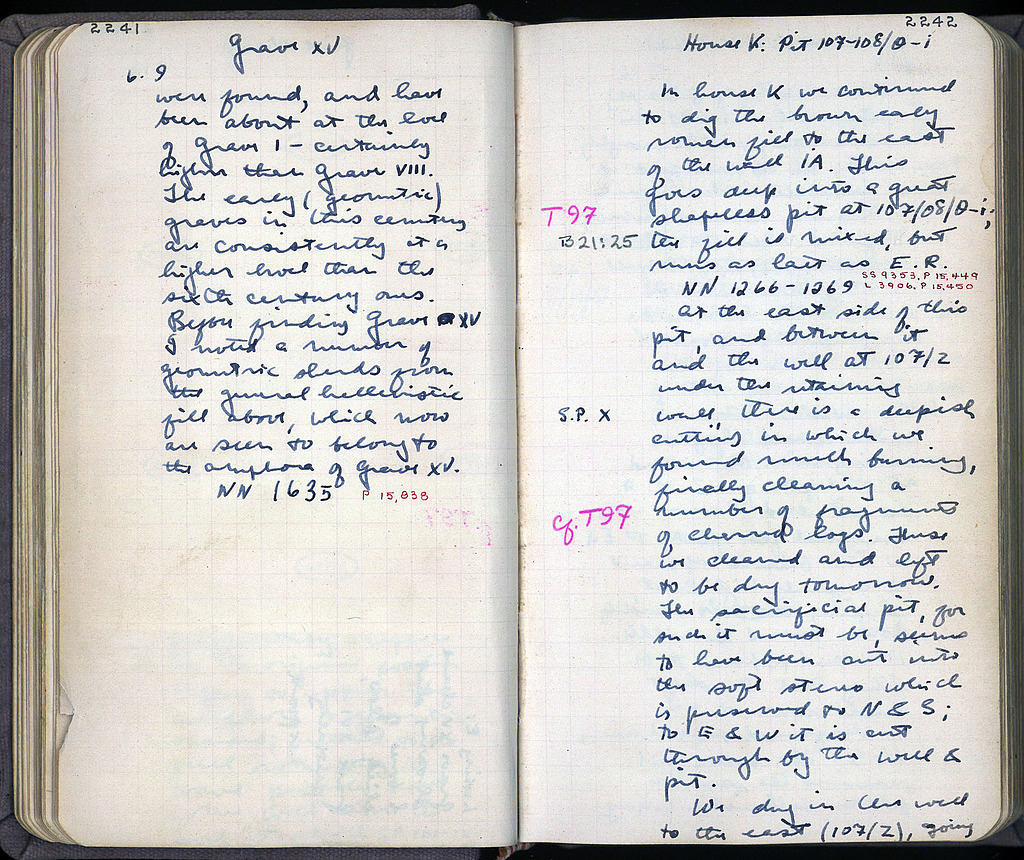 2241
Grave XV
6. 9
were found, and have
been about at the level
of Grave I - certainly
higher than Grave VIII.
The early (geometric)
graves in this cemetery
are consistently at a
higher level than the
sixth century ones.
Before finding Grave XV
I noted a number of
geometric sherds from
the general hellenistic
fill above, which now
are seen to belong to
the amphora of Grave XV.
NN 1635 P 15,838
2242
House K: Pit 107-108/Θ-i
In house K we continued
to dig the brown early
roman fill to the east
of the wall 1A. This
goes deep into a great
T97 shapeless pit at 107/08/Θ-i;
B21:25 the fill is mixed, but
runs as late as E.R.
SS 9353, P 15,449
NN 1266-1269 L 3906, P 15,450
At the east side of this
pit, and between it
and the well at 107/2
under the retaining
S.P. X wall, there is a deepish
cutting in which we
found much burning,
finally cleaning a
cf. T97 number of fragments
of charred logs. These
we cleaned and left
to be dug tomorrow.
The sacrificial pit, for
such it must be, seems
to have been cut into
the soft stereo which
is preserved to N & S;
to E & W it is cut
through by the well &
pit.
We dug in the well
to the east (107/2), going